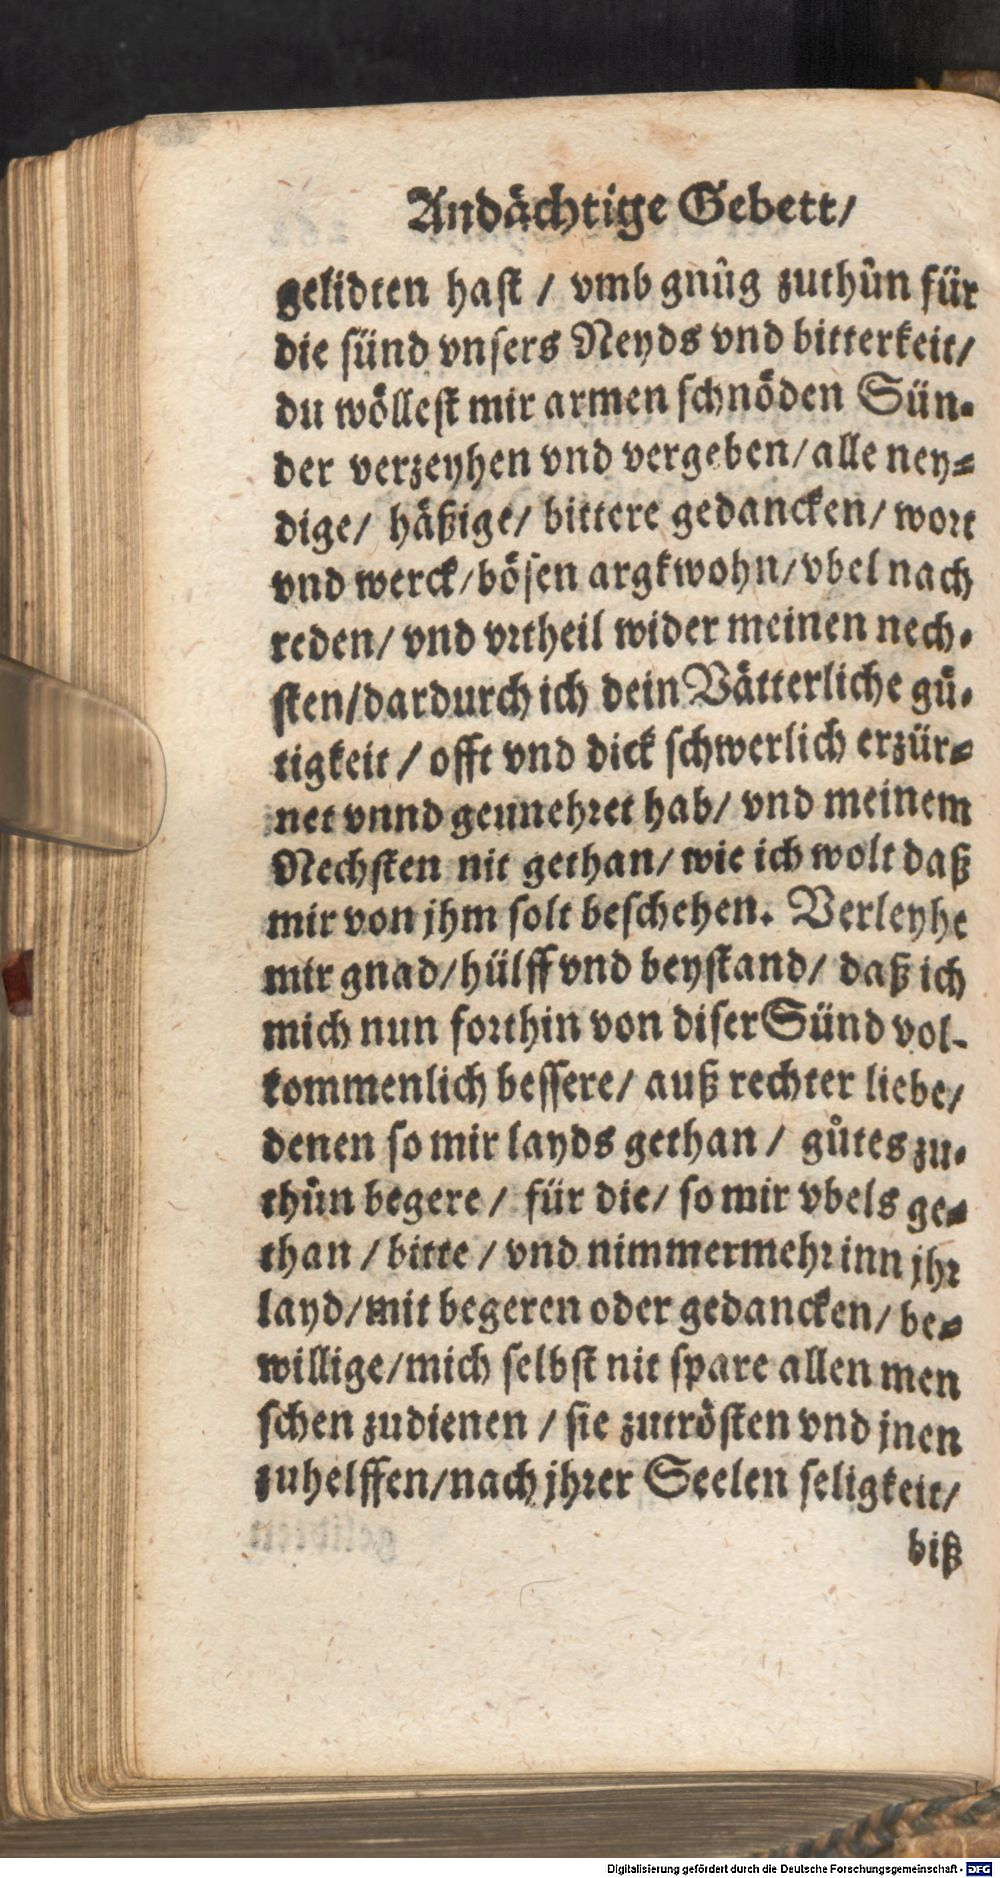 Andächtige Gebett/
gelidten hast / vmb gnůg zuthůn für
die sünd vnsers Neyds vnd bitterkeit/
du wöllest mir armen schnöden Sün-
der verzeyhen vnd vergeben/ alle ney-
dige/ häßige/ bittere gedancken/ wort
vnd werck/ bösen argkwohn/ vbel nach
reden/ vnd vrtheil wider meinen nech-
sten/ dardurch ich dein Vätterliche gü-
tigkeit / offt vnd dick schwerlich erzür-
net vnnd geunehret hab/ vnd meinem
Nechsten nit gethan/ wie ich wolt daß
mir von jhm solt beschehen. Verleyhe
mir gnad/ hülff vnd beystand/ daß ich
mich nun forthin von diser Sünd vol-
kommenlich bessere/ auß rechter liebe/
denen so mir layds gethan / gůtes zu-
thůn begere / für die/ so mir vbels ge-
than / bitte / vnd nimmermehr inn jhr
layd/ mit begeren oder gedancken/ be-
willige/ mich selbst nit spare allen men
schen zudienen / sie zutrösten vnd jnen
zuhelffen/ nach jhrer Seelen seligkeit/
biß
Digitalisierung gefördert durch die Deutsche Forschungsgemeinschaft - DFG